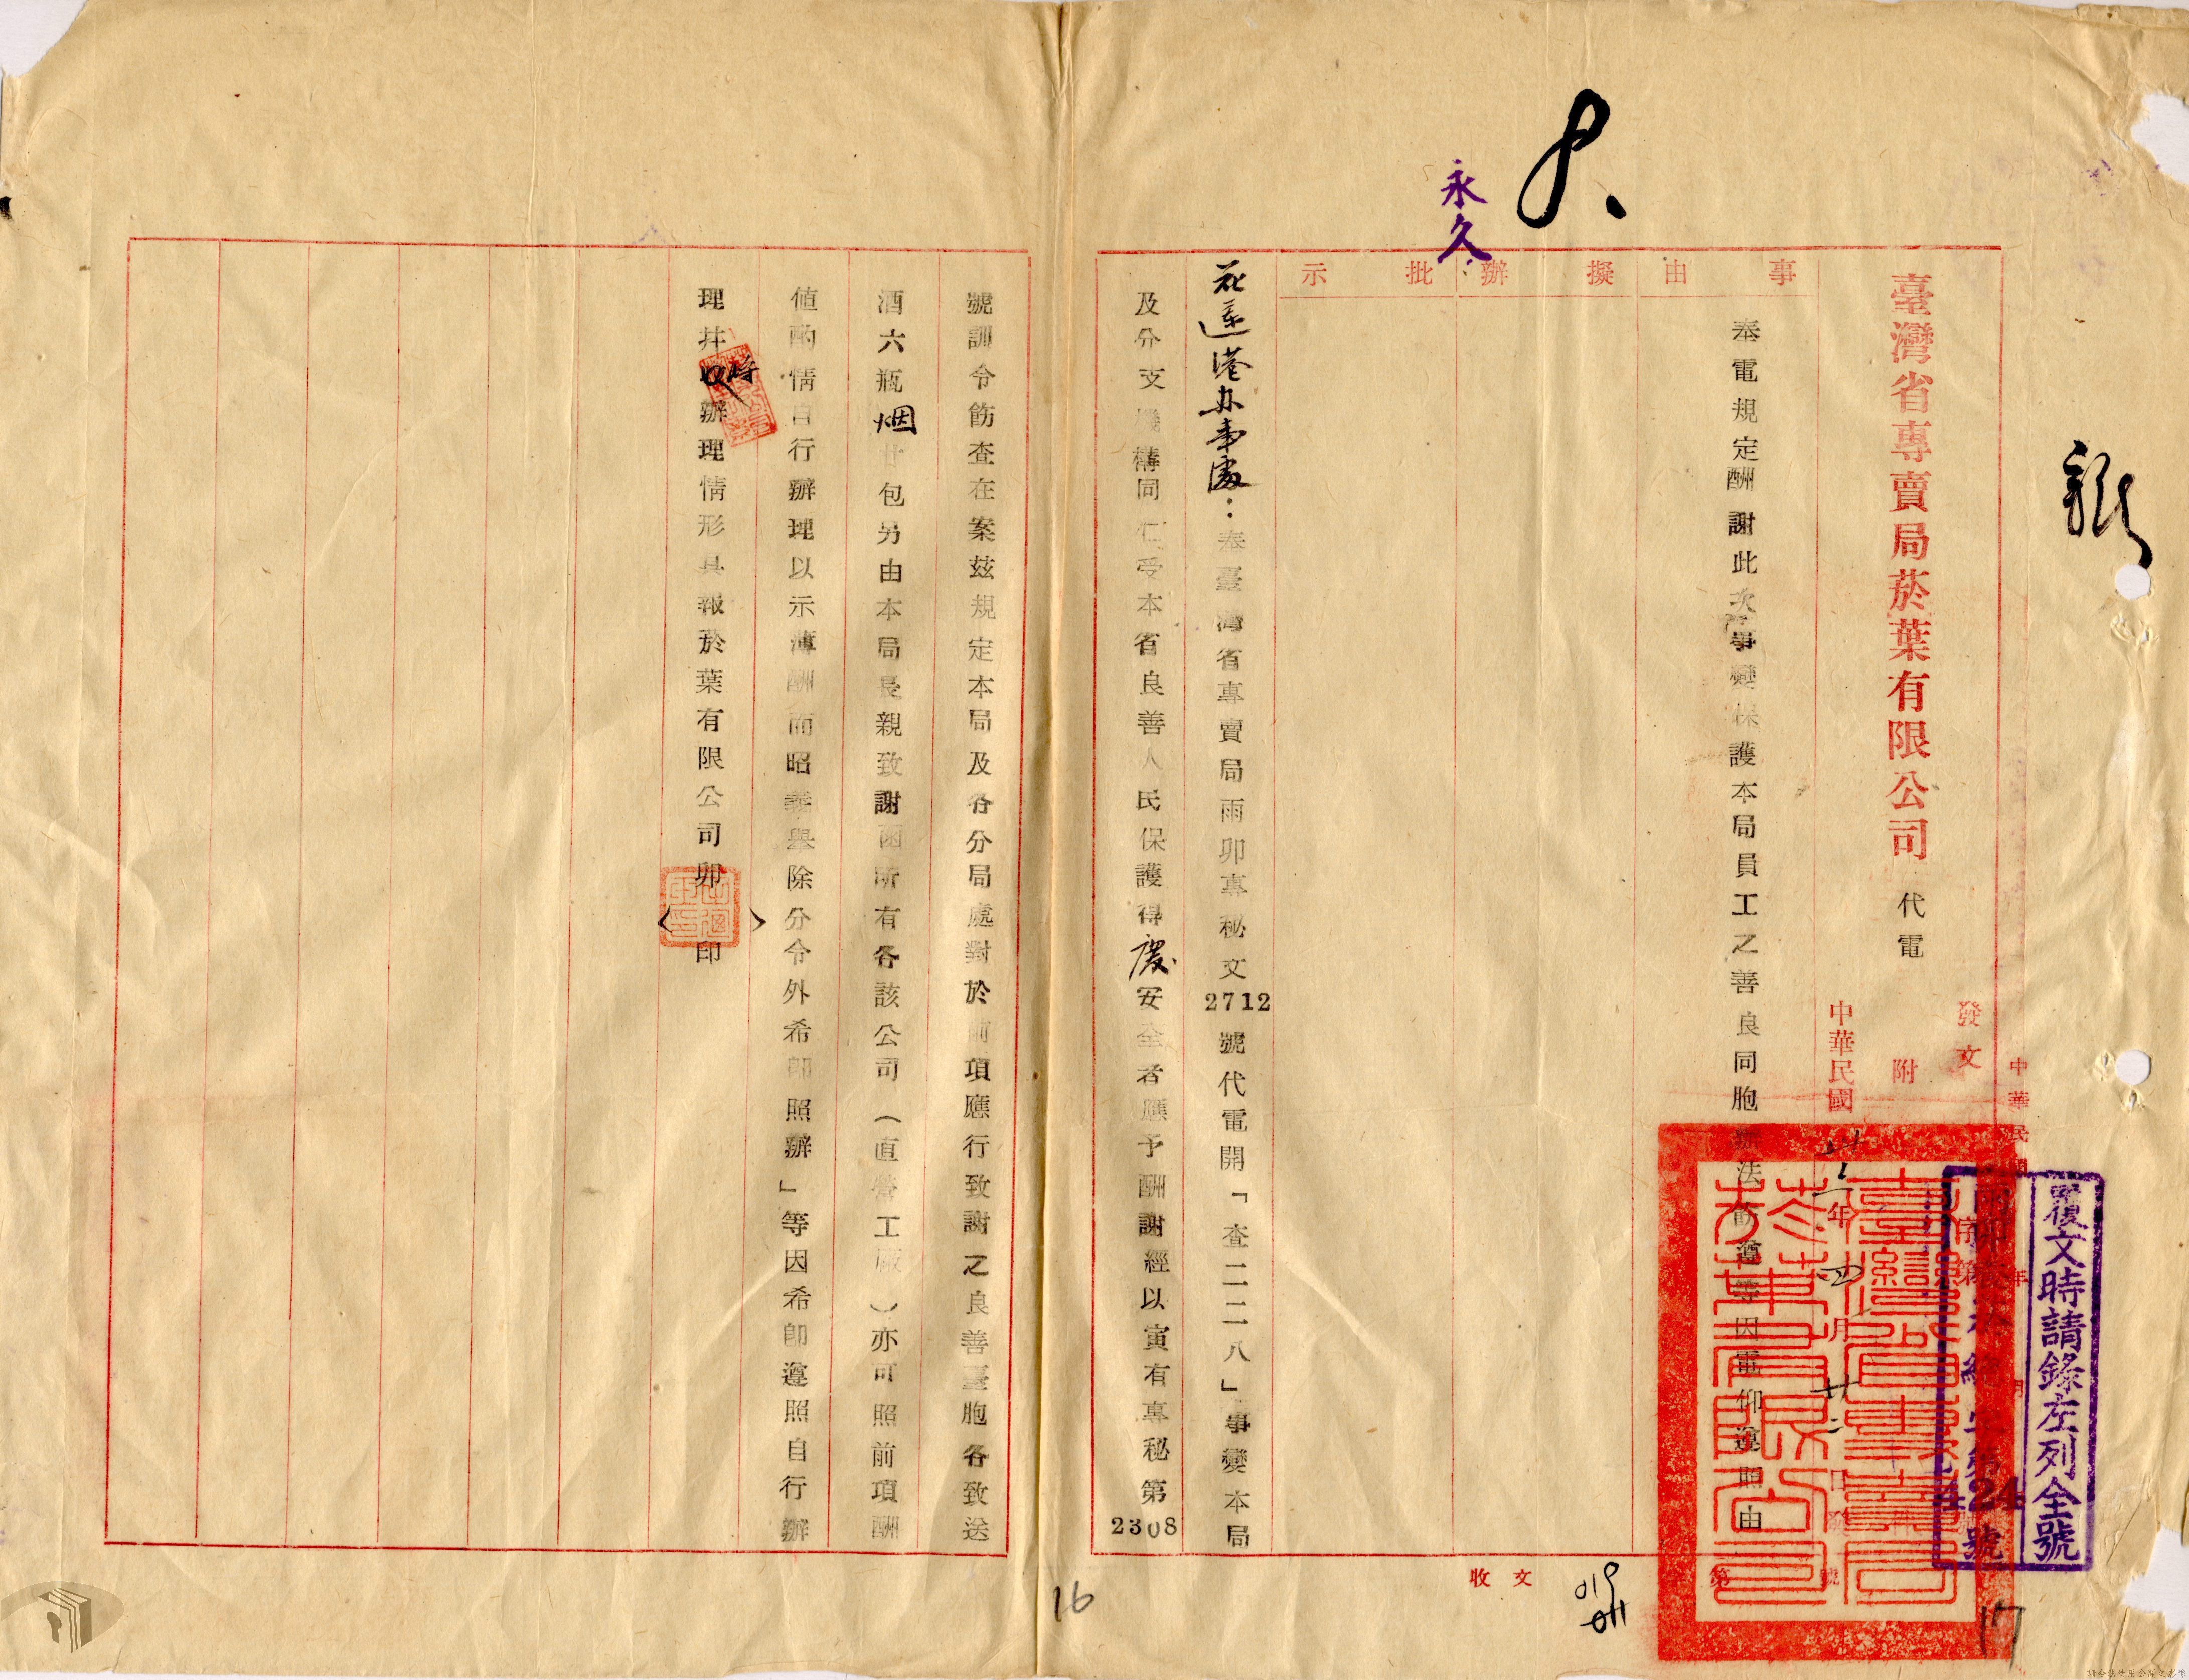 永久
臺灣省專賣局菸葉有限公司 代電
發文
附
中華民國 卅六年四月廿二日
覆文時請錄左列全號
事由
擬辦
批示
奉電規定酬謝此次事變保護本局員工之善良同胞辦法飭遵等因電仰遵照由
花蓮港办事處：奉臺灣省專賣局雨卯專秘文2712號代電開「查二二八」事變本局
及分支機構同仁受本省良善人民保護得慶安全者應予酬謝經以寅有專秘第2308
號訓令飭查在案茲規定本局及各分局處對於前項應行致謝之良善臺胞各致送
酒六瓶烟廿包另由本局長親致謝函所有各該公司（直營工廠）亦可照前項酬
值酌情自行辦理以示薄酬而昭義舉除分令外希卽照辦」等因希卽遵照自行辦
理并將辦理情形具報菸葉有限公司卯〈〉印
收文 第 號
16
17